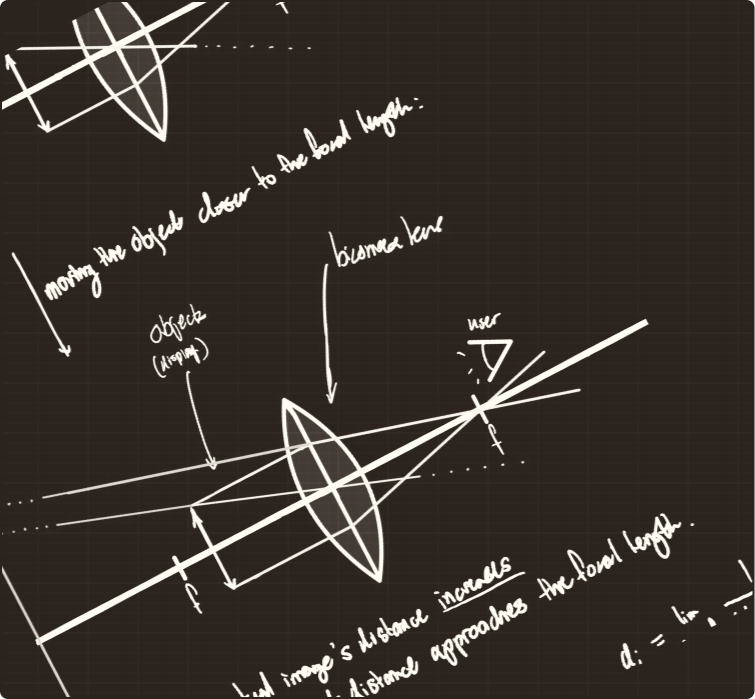 moving the object closer to the focal length:
biconvex lens
object
(display)
user
f
f
image's distance increases
distance approaches the focal length.
di = lim